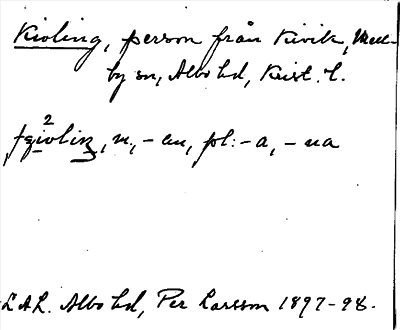 Kivling, person från Kivik, Mell-
by sn, Albo hd, Krist. l.
m, -en, pl: -a, -na
L.A.L. Albo hd, Per Larsson 1897-98.